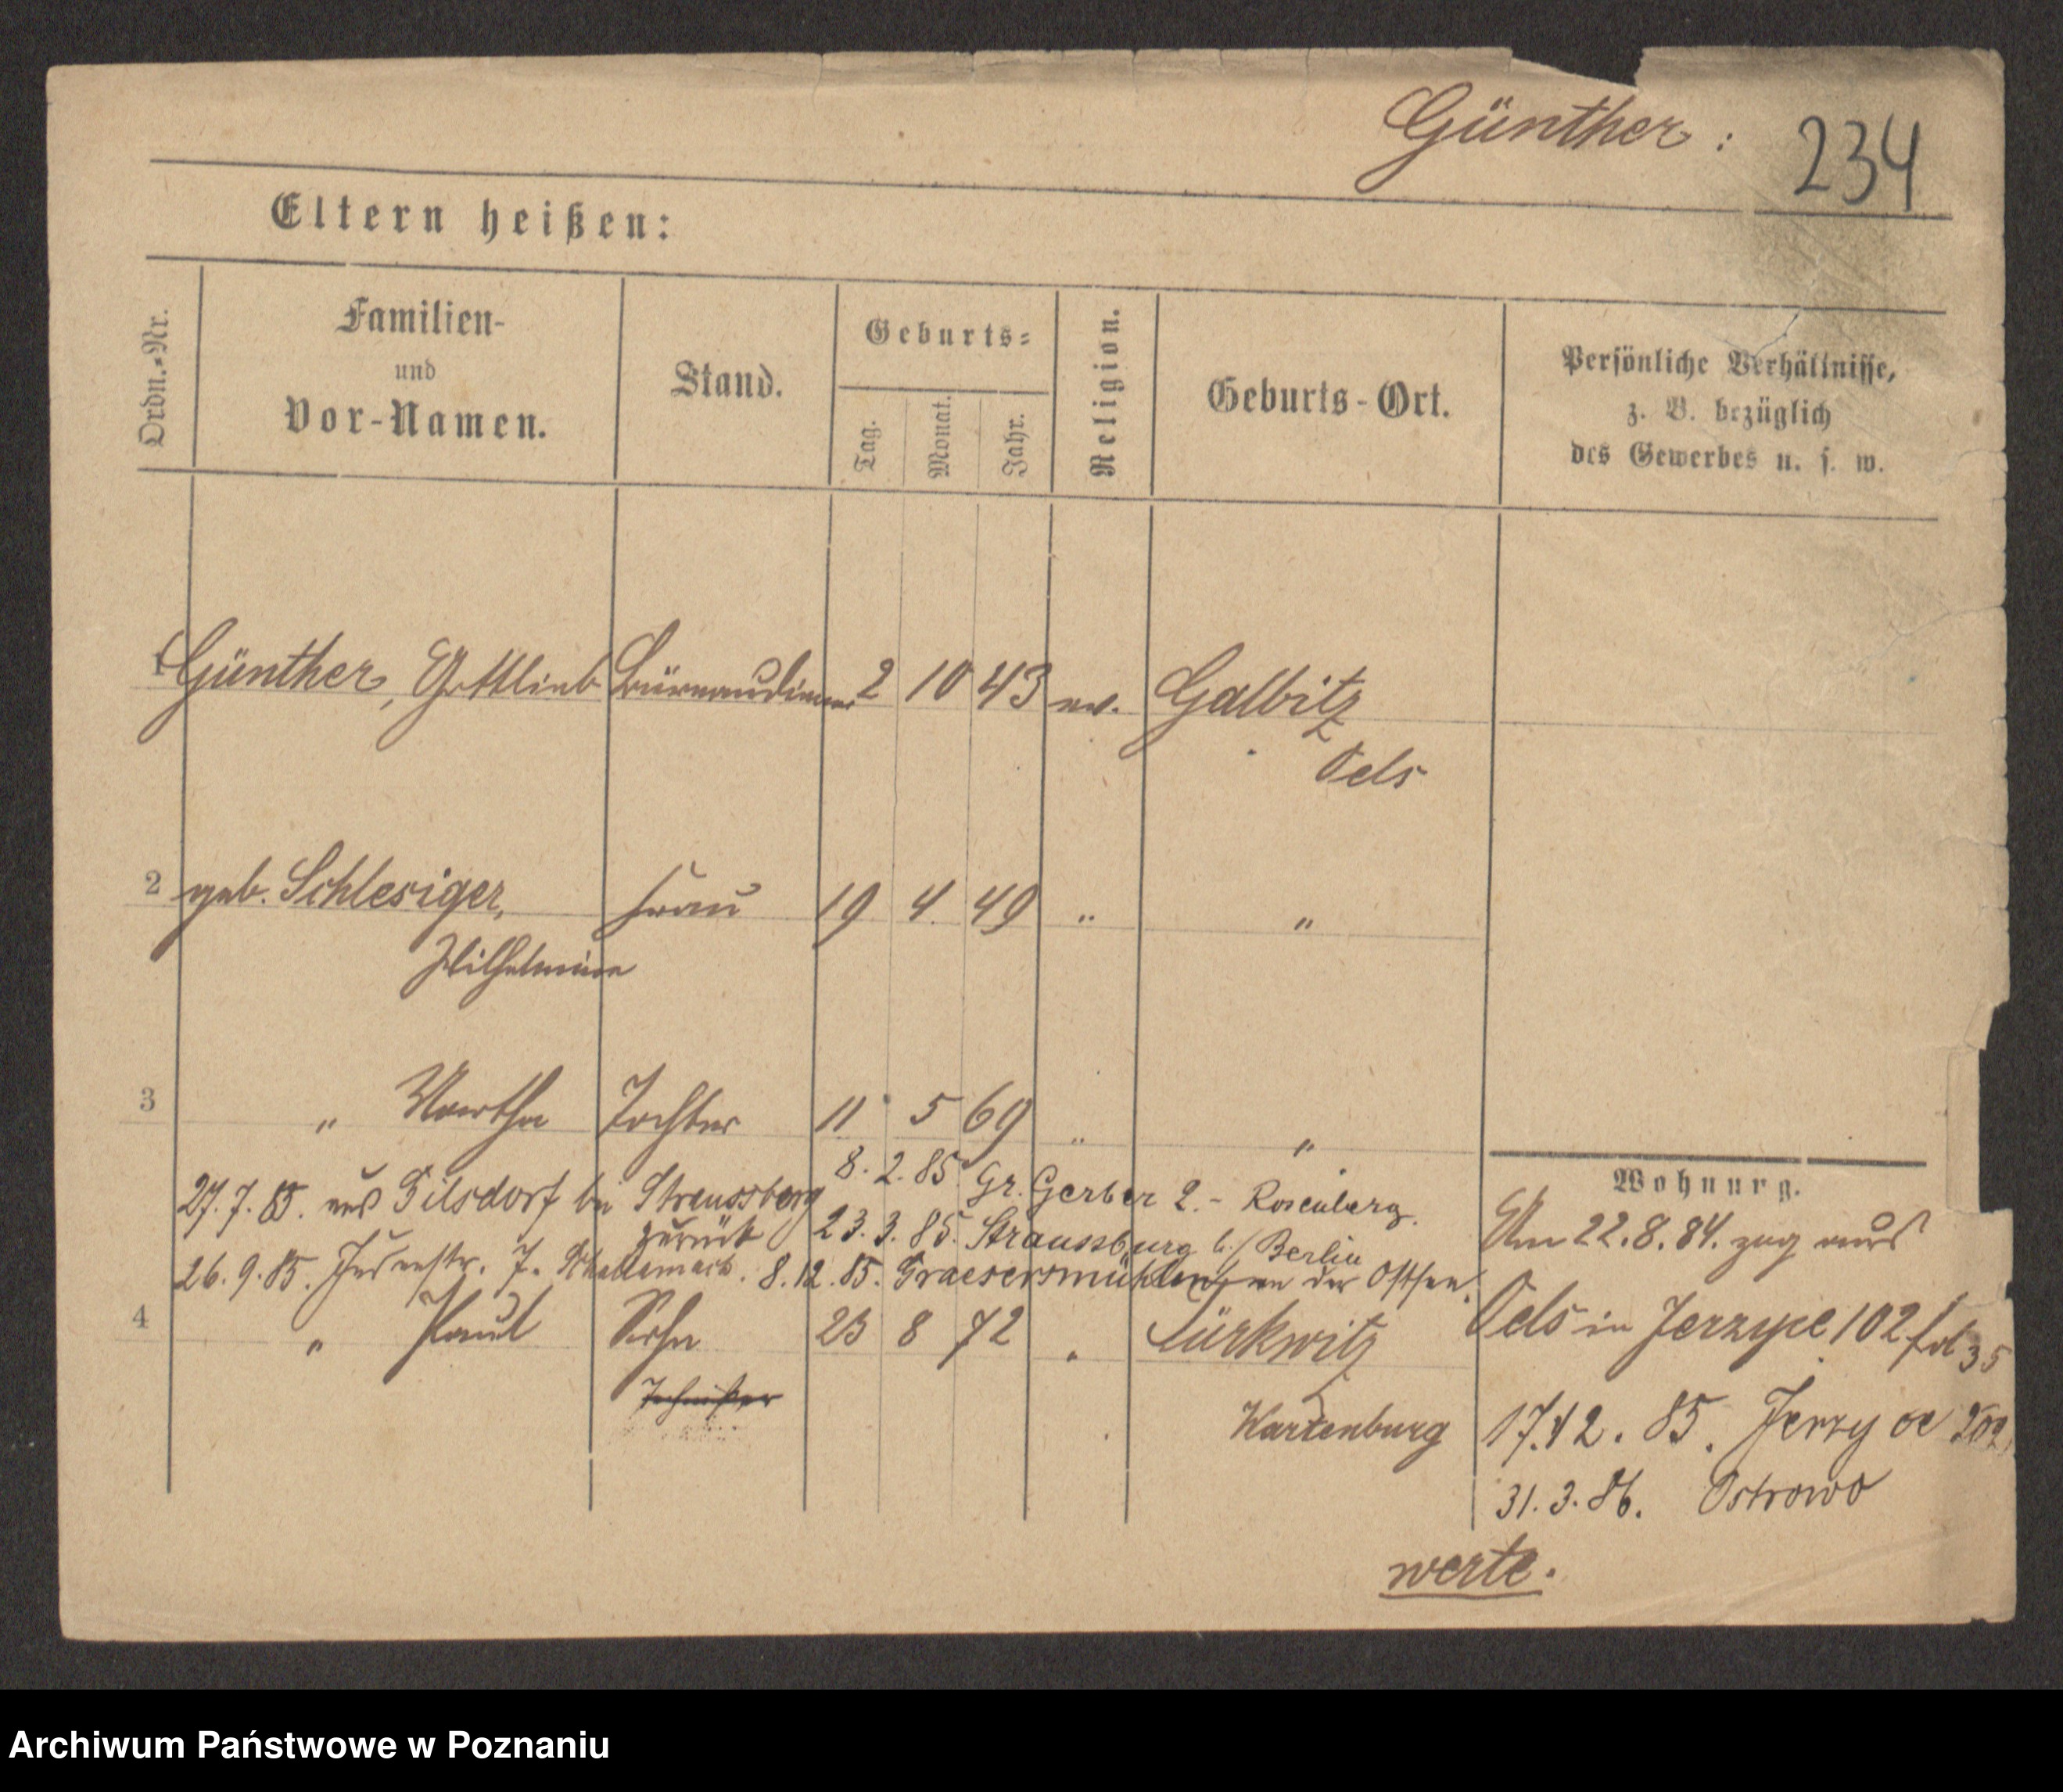 Günther: 234
Eltern heißen:
Ordn.-Nr.
Familien-
und
Vor-Namen.
Stand.
Geburts-
Tag.
Monat.
Jahr.
Religion.
Geburts-Ort.
Persönliche Verhältnisse,
z. B. bezüglich
des Gewerbes u. s. w.
1 Günther, Gottlieb Büreaudiener 2 10 43 ev. Galbitz
Oels
2 geb. Schlesiger, Frau 19 4. 49 " "
Wilhelmine
3 " Martha Tochter 11 5 69 " "
8. 2. 85. Gr. Gerber 2. - Rosenberg.
27. 7. 85. aus Gilsdorf bei Straussberg
zurück 23. 3. 85. Straussburg b./Berlin
26. 9. 85. Judenstr. 7. 8. 12. 85. Graesersmühlen an der Ostsee.
4 " Paul Sohn 23 8 72 " Türkwitz
Wartenburg
Wohnung.
Am 22. 8. 84. zug aus
Oels in Jerzyce 102 fol 35
17. 12. 85. Jerzyce 202
31. 3. 86. Ostrowo
werte.
Archiwum Państwowe w Poznaniu